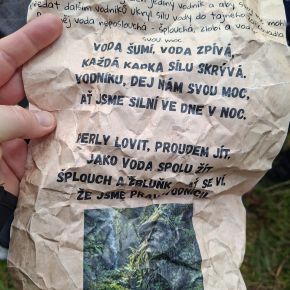 předat dalším vodníků
ukryl sílu vody do
voda neposlouchá - šplouchá, zlobí a
svou moc
VODA ŠUMÍ, VODA ZPÍVÁ,
KAŽDÁ KAPKA SÍLU SKRÝVÁ.
VODNÍKU, DEJ NÁM SVOU MOC,
AŤ JSME SILNÍ VE DNE V NOC.
PERLY LOVIT, PROUDEM JÍT,
JAKO VODA SPOLU ŽÍT
ŠPLOUCH A ŽBLUŇK SE VÍ,
ŽE JSME